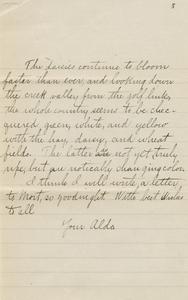 8
The daisies continue to bloom
faster than ever, and looking down
the creek valley from the golf links,
the whole country seems to be chec-
quered green, white, and yellow
with the hay, daisy, and wheat
fields. The latter are not yet truly
ripe, but are noticably changing color.
I think I will write a letter
to Mort, so goodnight. With best wishes
to all
Your Aldo